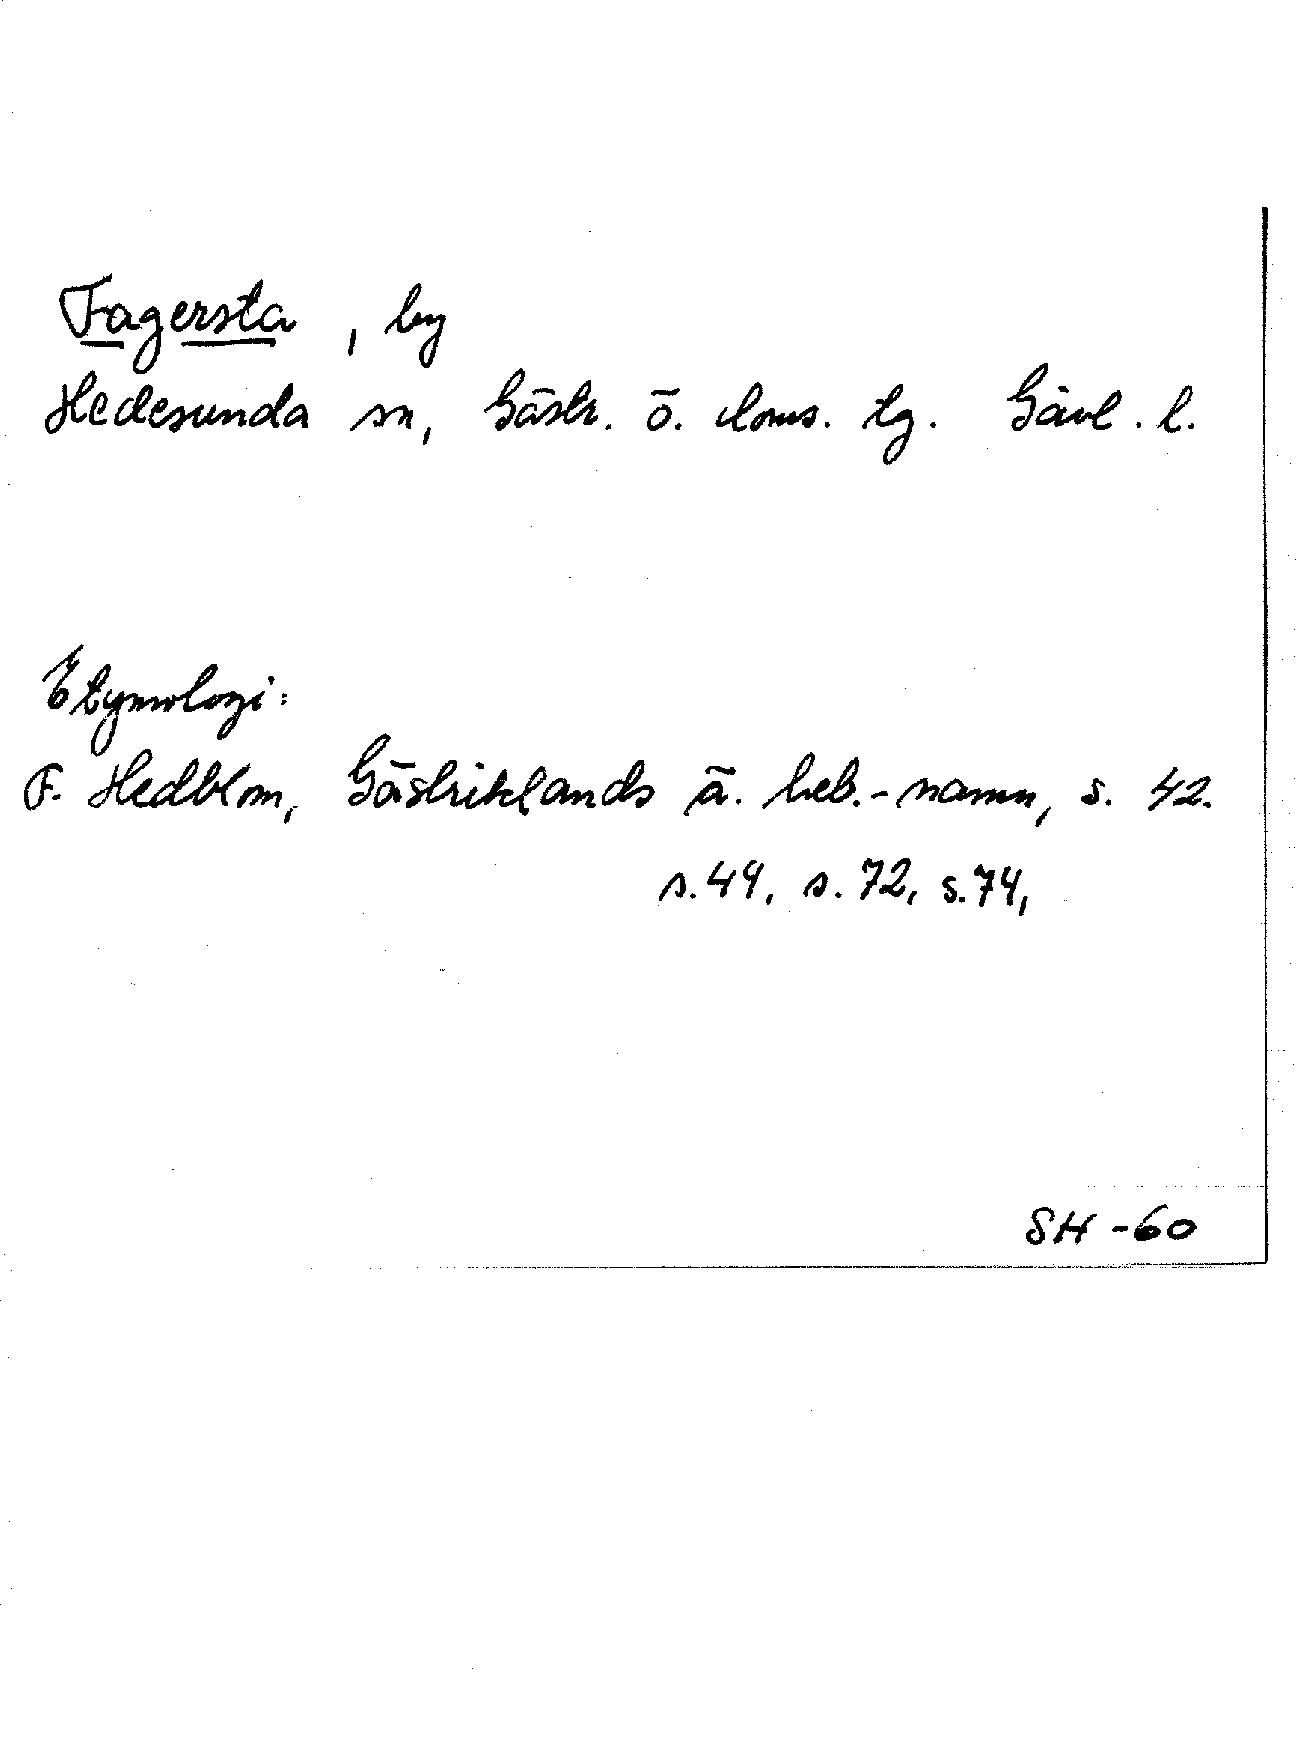 Fagersta, by
Hedesunda sn, Gästr. ö. doms. tg. Gävl. l.
Etymologi:
F. Hedblom, Gästriklands ä. beb.-namn, s. 42.
s. 49, s. 72, s. 74,
SH-60